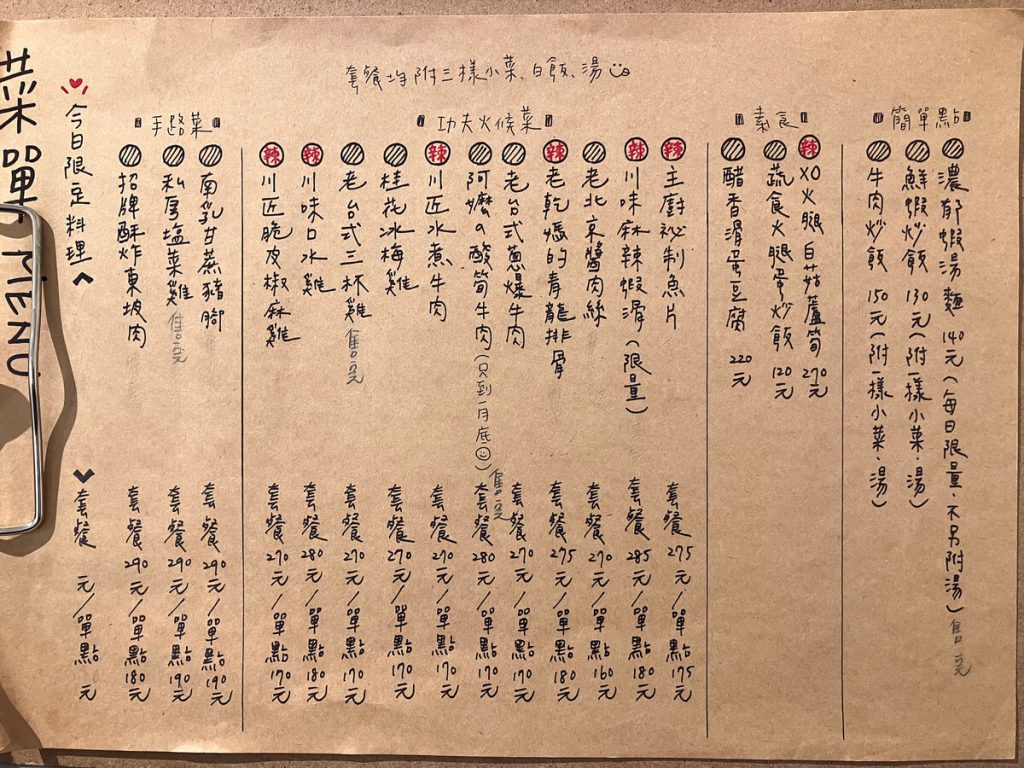 菜單 MENU
套餐均附三樣小菜、白飯、湯
今日限定料理 套餐 元/單點 元
手路菜
招牌酥炸東坡肉 套餐290元/單點180元
私房塩菜雞 售完 套餐290元/單點190元
南乳甘蔗豬腳 套餐290元/單點190元
功夫火候菜
辣 川匠脆皮椒麻雞 套餐270元/單點170元
辣 川味口水雞 套餐280元/單點180元
老台式三杯雞 售完 套餐270元/單點170元
桂花冰梅雞 套餐270元/單點170元
辣 川匠水煮牛肉 套餐270元/單點170元
阿嬤の酸筍牛肉(只到一月底) 售完 套餐280元/單點170元
老台式蔥爆牛肉 套餐270元/單點170元
辣 老乾媽的青龍排骨 套餐275元/單點180元
老北京醬肉絲 套餐270元/單點160元
辣 川味麻辣蝦滑(限量) 套餐285元/單點180元
辣 主廚祕制魚片 套餐275元/單點175元
素食
醋香滑蛋豆腐 220元
蔬食火腿蛋炒飯 120元
辣 XO火腿白菇蘆筍 270元
簡單點
牛肉炒飯 150元(附一樣小菜、湯)
鮮蝦炒飯 130元(附一樣小菜、湯)
濃郁蝦湯麵 140元(每日限量、不另附湯) 售完